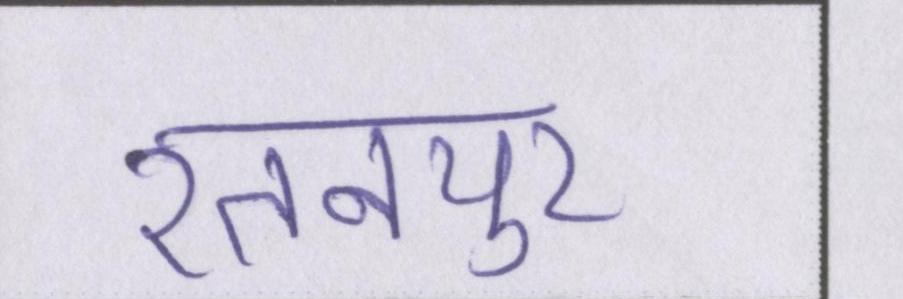 रतनपुर